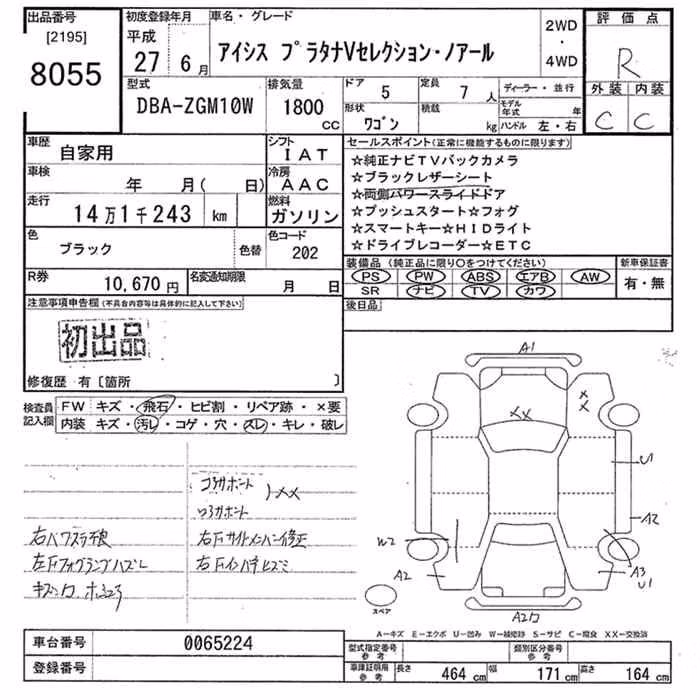 出品番号 初度登録年月 車名・グレード 2WD・4WD 評価点
[2195]
8055
平成 27年 6月
アイシス プラタナVセレクション・ノアール
R
外装 内装
C C
型式 排気量 ドア 5 定員 7人 ディーラー・並行
DBA-ZGM10W 1800cc
形状 ワゴン 積載 kg モデル年式 年
ハンドル 左・右
車歴 自家用 シフト IAT
車検 年 月( 日) 冷房 AAC
走行 14万1千243 km 燃料 ガソリン
色 ブラック 色替 色コード 202
R券 10,670円 名変通知期限 月 日
セールスポイント(正常に機能するものに限ります)
☆純正ナビTVバックカメラ
☆ブラックレザーシート
☆両側パワースライドドア
☆プッシュスタート☆フォグ
☆スマートキー☆HIDライト
☆ドライブレコーダー☆ETC
装備品(純正品に限り○をつけてください) 新車保証書
PS PW ABS エアB AW 有・無
SR ナビ TV カワ
後日品
注意事項申告欄(不具合内容等は具体的に記入して下さい)
初出品
修復歴 有〔箇所 〕
検査員記入欄
FW キズ・飛石・ヒビ割・リペア跡・×要
内装 キズ・汚レ・コゲ・穴・スレ・キレ・破レ
コアサポート
ロアサポート
XX
右パワスラ不良
右Fサイドメンバー修正
左Fフォグランプハズレ
右Fインパネヒズミ
A1
XX
XX
U1
A2
W2
A2
A3
U1
スペア
A-キズ E-エクボ U-凹み W-補修跡 S-サビ C-腐食 XX-交換済
車台番号 0065224
登録番号
型式指定番号 参考 類別区分番号 参考
車庫証明用 参考 長さ 464cm 幅 171cm 高さ 164cm